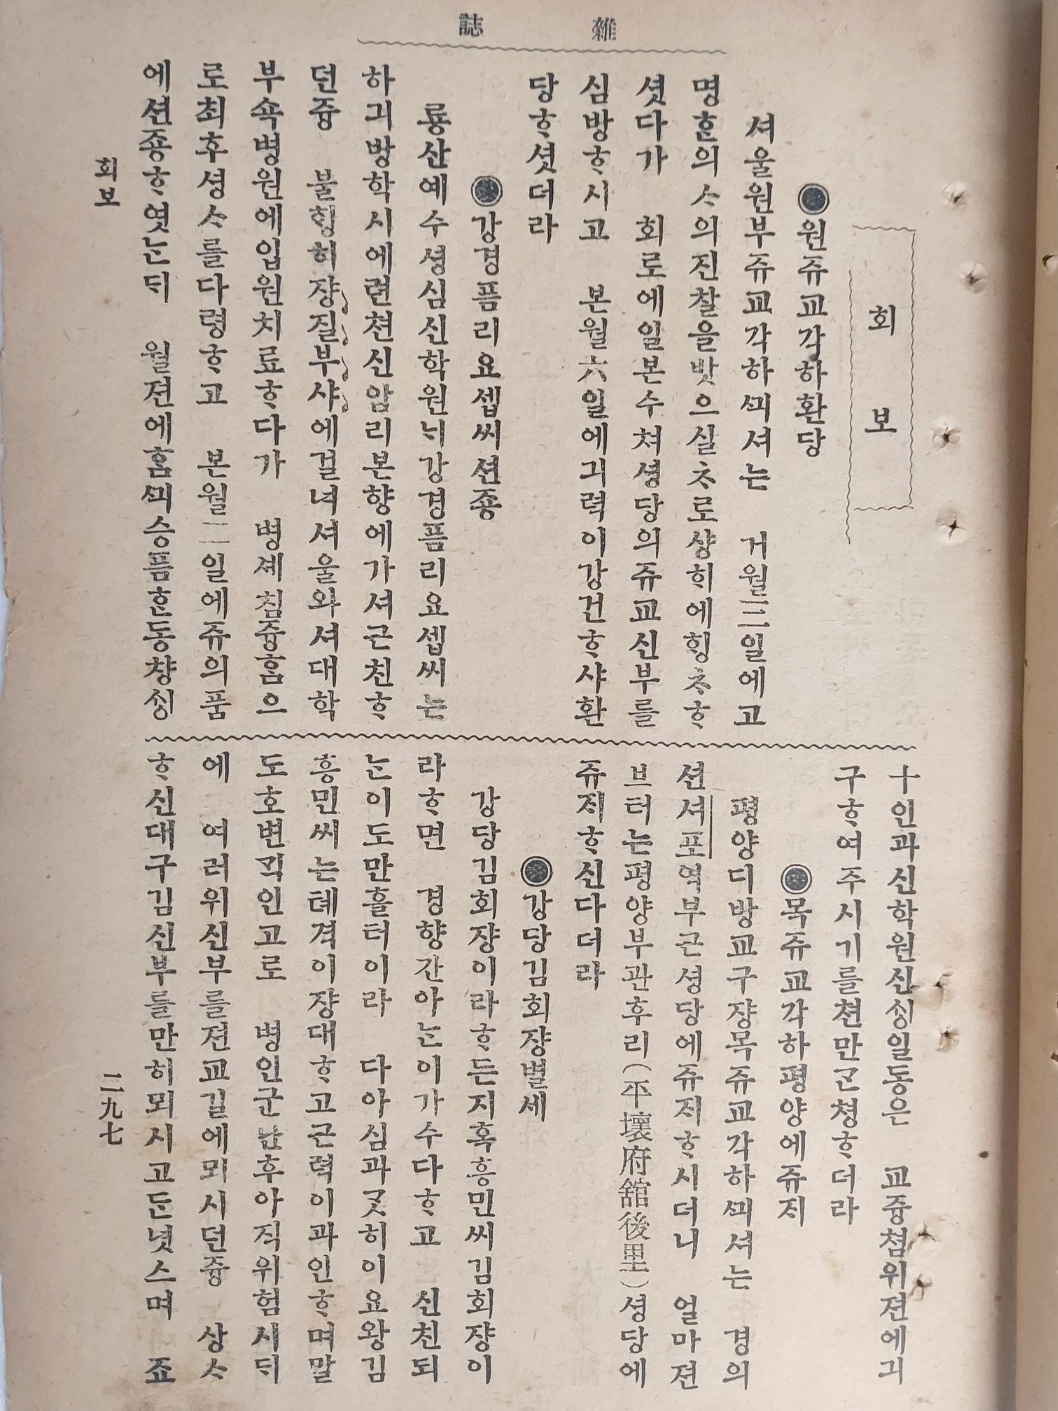 雜誌
회보
◉원쥬교각하환당
셔울원부쥬교각하ᄭᅴ셔는 거월三일에고
명ᄒᆞᆫ의ᄉᆞ의진찰을밧으실ᄎᆞ로샹ᄒᆡ에ᄒᆡᆼᄎᆞᄒᆞ
셧다가 회로에일본수쳐셩당의쥬교신부를
심방ᄒᆞ시고 본월六일에긔력이강건ᄒᆞ샤환
당ᄒᆞ셧더라
◉강경픔리요셉씨션죵
룡산예수셩심신학원ᄂᆡ강경픔리요셉씨는
하긔방학시에련쳔신암리본향에가셔근친ᄒᆞ
던즁 불ᄒᆡᆼ히쟝질부샤에걸녀셔울와셔대학
부쇽병원에입원치료ᄒᆞ다가 병셰침즁홈으
로최후셩ᄉᆞ를다령ᄒᆞ고 본월二일에쥬의품
에션죵ᄒᆞ엿ᄂᆞᆫᄃᆡ 월젼에홈ᄭᅴ승픔ᄒᆞᆫ동챵ᄉᆡᆼ
十인과신학원신ᄉᆡᆼ일동은 교즁쳠위젼에긔
구ᄒᆞ여주시기를쳔만ᄀᆞᆫ쳥ᄒᆞ더라
◉목쥬교각하평양에쥬ᄌᆡ
평양디방교구쟝목쥬교각하ᄭᅴ셔는 경의
션셔포역부근셩당에쥬ᄌᆡᄒᆞ시더니 얼마젼
브터는평양부관후리(平壤府舘後里)셩당에
쥬ᄌᆡᄒᆞ신다더라
◉강당김회쟝별세
강당김회쟝이라ᄒᆞ든지혹흥민씨김회쟝이
라ᄒᆞ면 경향간아ᄂᆞᆫ이가수다ᄒᆞ고 신친되
ᄂᆞᆫ이도만흘터이라 다아심과ᄀᆞᆺ히이요왕김
흥민씨는톄격이쟝대ᄒᆞ고근력이과인ᄒᆞ며말
도호변ᄀᆡᆨ인고로 병인군난후아직위험시ᄃᆡ
에 여러위신부를젼교길에뫼시던즁 상ᄉᆞ
ᄒᆞ신대구김신부를만히뫼시고ᄃᆞᆫ녓스며 죠
회보
二九七